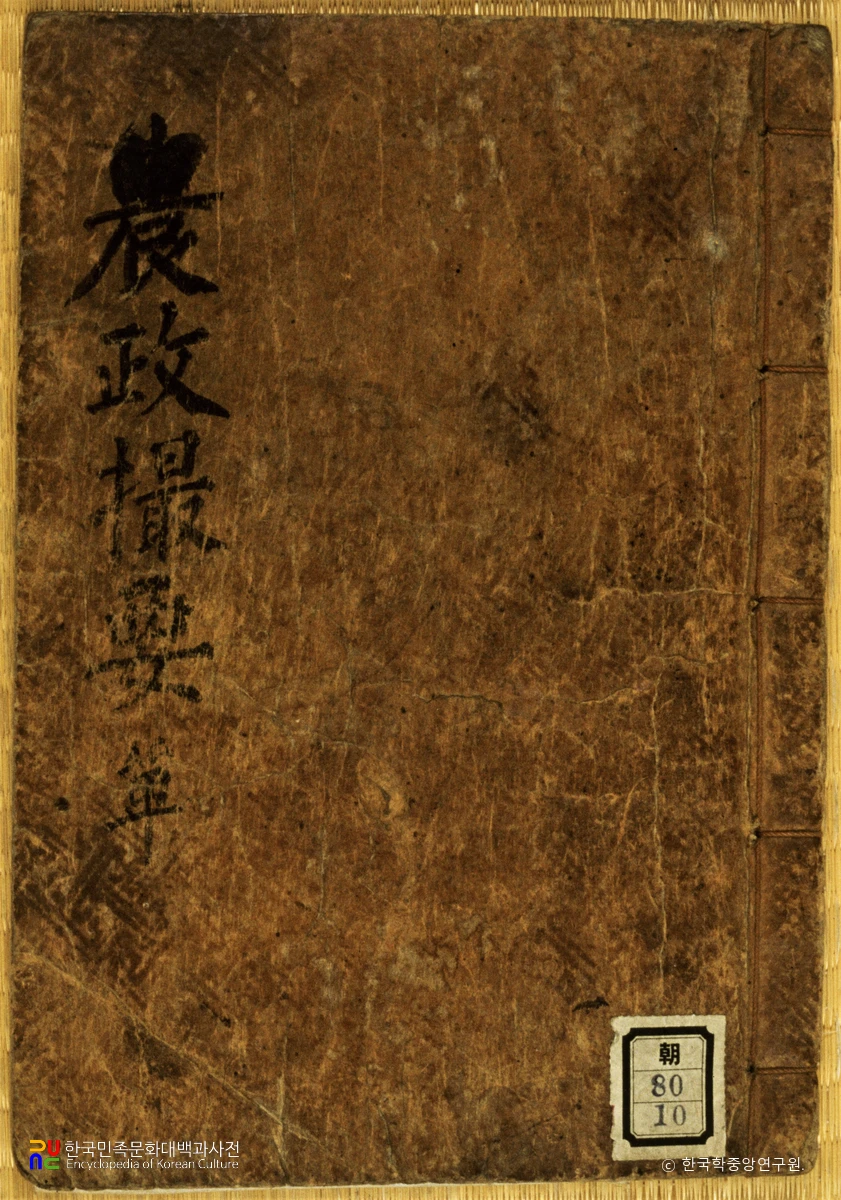 農政撮要 單
朝
80
10
한국민족문화대백과사전
Encyclopedia of Korean Culture
© 한국학중앙연구원